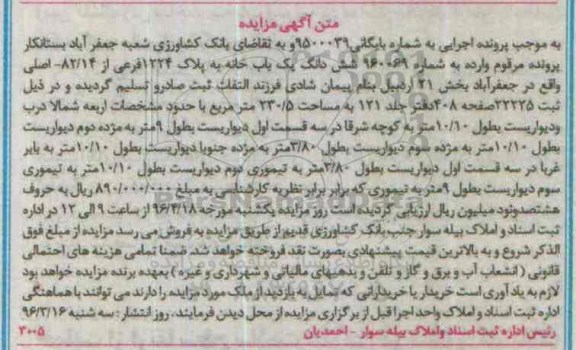 متن آگهی مزایده
به موجب پرونده اجرایی به شماره بایگانی ۹۵۰۰۰۳۹و به تقاضای بانک کشاورزی شعبه جعفر آباد بستانکار
پرونده مرقوم وارده به شماره ۹۶۰۰۶۹ شش دانگ یک باب خانه به پلاک ۱۲۲۴فرعی از ۸۲/۱۴- اصلی
واقع در جعفرآباد بخش ۲۱ اردبیل بنام پیمان شادی فرزند التفات ثبت صادرو تسلیم گردیده و در ذیل
ثبت ۲۲۲۲۵صفحه ۴۰۸دفتر جلد ۱۲۱ به مساحت ۲۳۰/۵ متر مربع با حدود مشخصات اربعه شمالا درب
ودیواریست بطول ۱۰/۱۰متر به کوچه شرقا در سه قسمت اول دیواریست بطول ۹متر به مژده دوم دیواریست
بطول ۱۰/۱۰متر به مژده سوم دیواریست بطول ۳/۸۰متر به مژده جنوبا دیواریست بطول ۱۰/۱۰متر به بایر
غربا در سه قسمت اول دیواریست بطول ۳/۸۰متر به تیموری دوم دیواریست بطول ۱۰/۱۰متر به تیموری
سوم دیواریست بطول ۹متر به تیموری که برابر برابر نظریه کارشناسی به مبلغ ۸۹۰/۰۰۰/۰۰۰ ریال به حروف
هشتصدونود میلیون ریال ارزیابی گردیده است روز مزایده یکشنبه مورخه ۹۶/۴/۱۸ از ساعت ۹ الی ۱۲ در اداره
ثبت اسناد و املاک بیله سوار جنب بانک کشاورزی قدیم از طریق مزایده به فروش می رسد مزایده از مبلغ فوق
الذکر شروع و به بالاترین قیمت پیشنهادی بصورت نقد فروخته خواهد شد. ضمنا تمامی هزینه های احتمالی
قانونی ( انشعاب آب و برق و گاز و تلفن و بدهیهای مالیاتی و شهرداری و غیره ) بعهده برنده مزایده خواهد بود
لازم به یاد آوری است خریدار یا خریدارانی که تمایل به بازدید از ملک مورد مزایده را دارند می توانند با هماهنگی
اداره ثبت اسناد و املاک واحد اجرا قبل از برگزاری مزایده از محل دیدن فرمایند. روز انتشار : سه شنبه ۹۶/۳/۱۶
رئیس اداره ثبت اسناد واملاک بیله سوار - احمدیان ۳۰۰۵